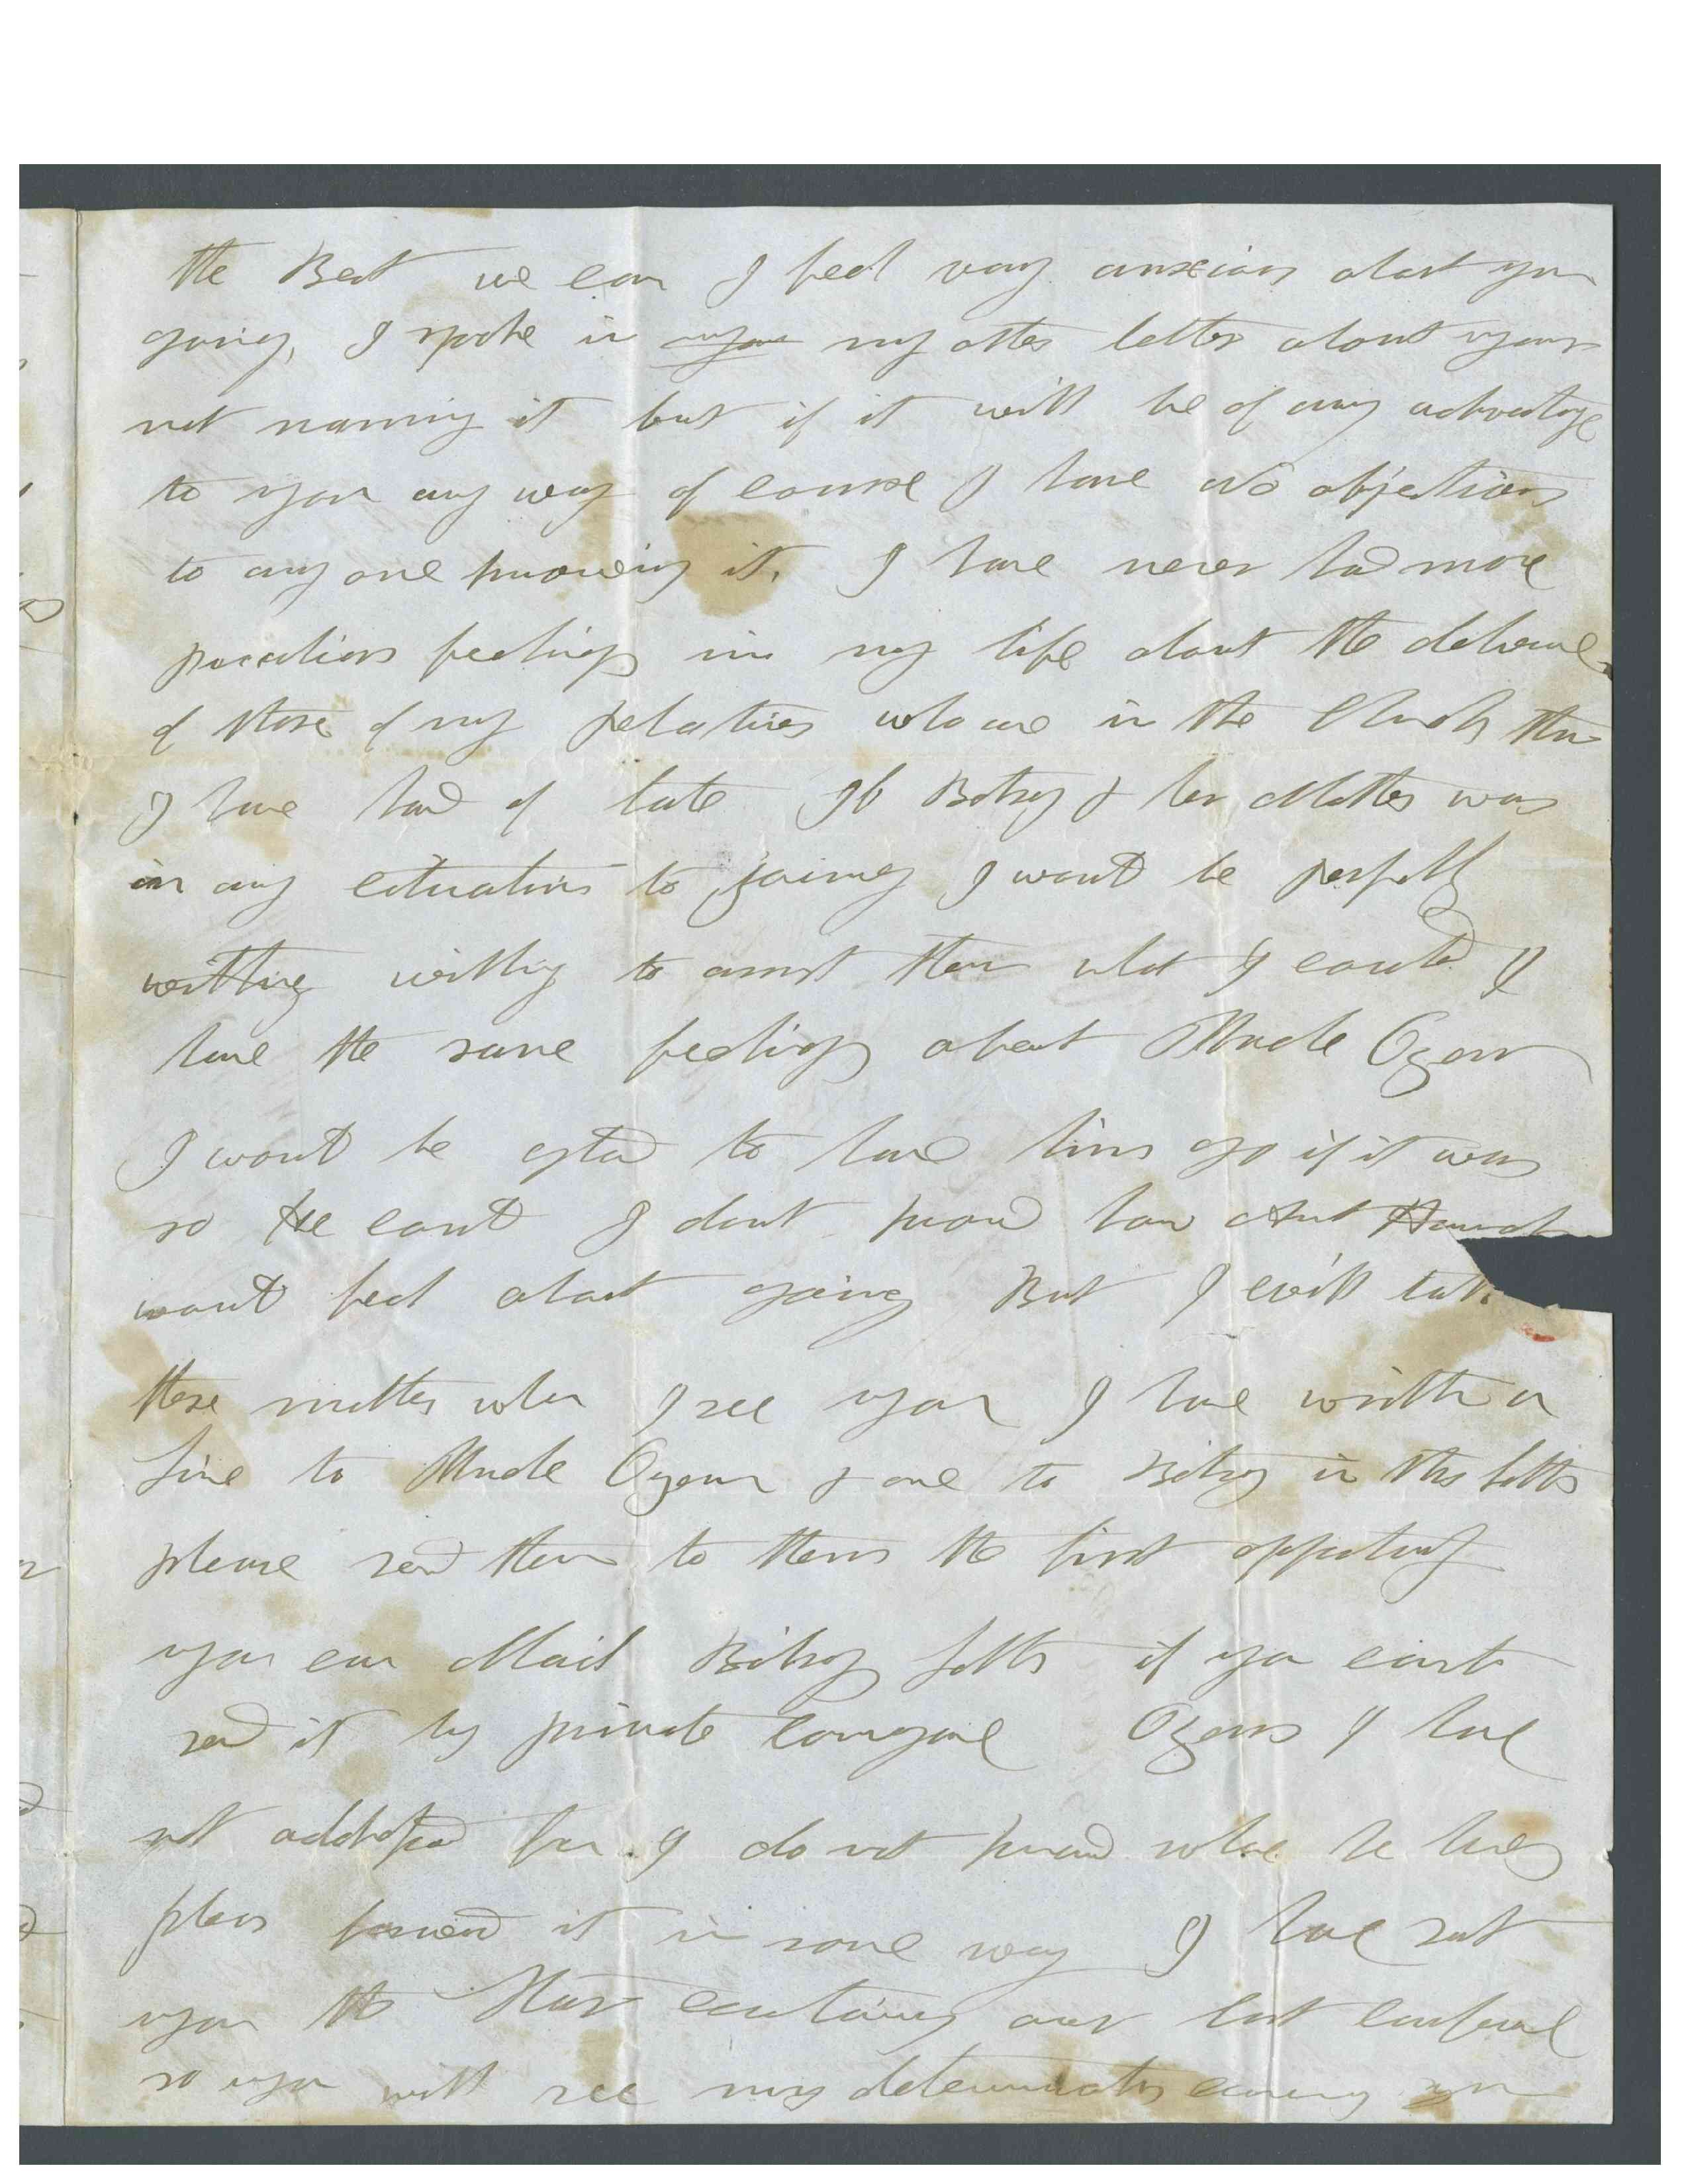 the Best we can I feel very anxious about you
going, I spoke in my other letter about your
not naming it but if it will be of any advantage
to you any way of course I have no objections
to any one knowing it, I have never had more
peculiar feelings in my life about the
of those of my relatives who are in the Church than
I have had of late If Betsey & her Mother was
in any situation to I would be perfectly
willing willing to assist them what I could I
have the same feelings about Uncle Ozem
I would be glad to have him go if it was
so He could I dont know how Aunt Hannah
would feel about going But I will talk
these matters when I see you I have written a
line to Uncle Ozem & one to Betsey in this letter
please send them to them the first opportunity
you can Mail Betsey letter if you cant
send it by private conveyance Ozems I have
not addressed for I do not know where he lives
pleas forward it in some way I have sent
you the Star containing our last conference
so you will see my determination